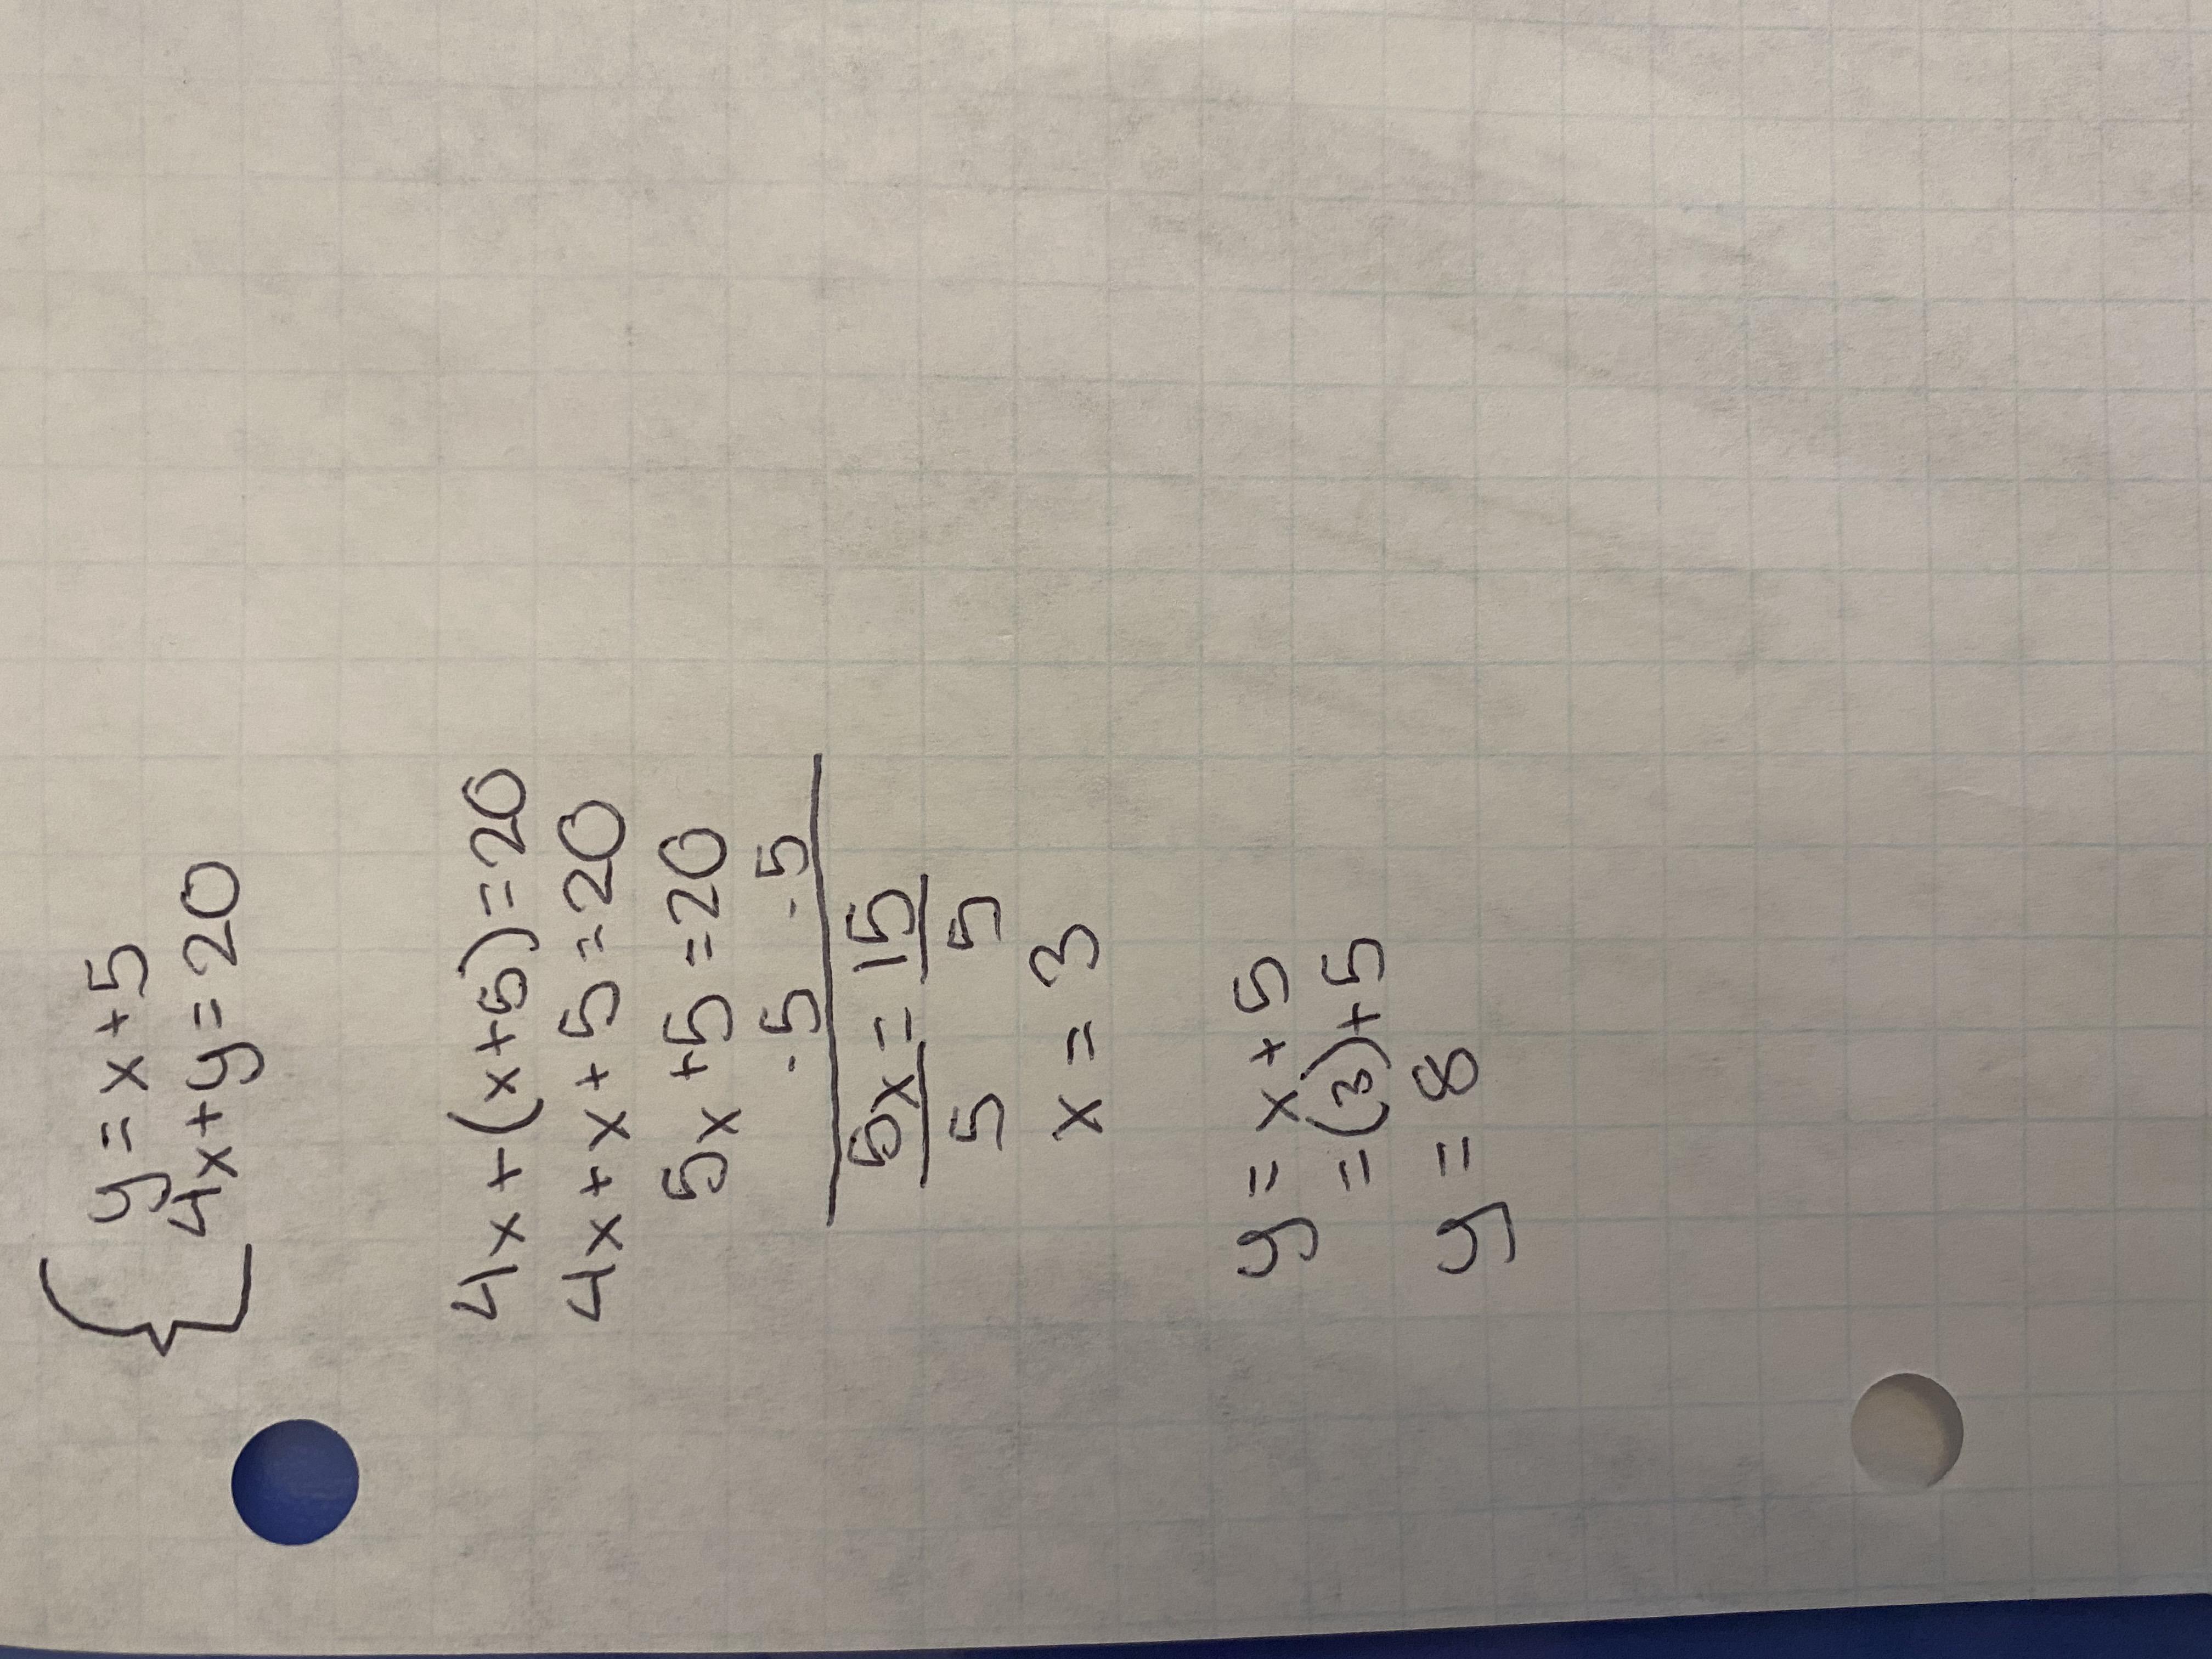 { y = x + 5
4x + y = 20
4x + (x+5) = 20
4x + x + 5 = 20
5x + 5 = 20
-5 -5
5x = 15
5 5
x = 3
y = x + 5
= (3) + 5
y = 8